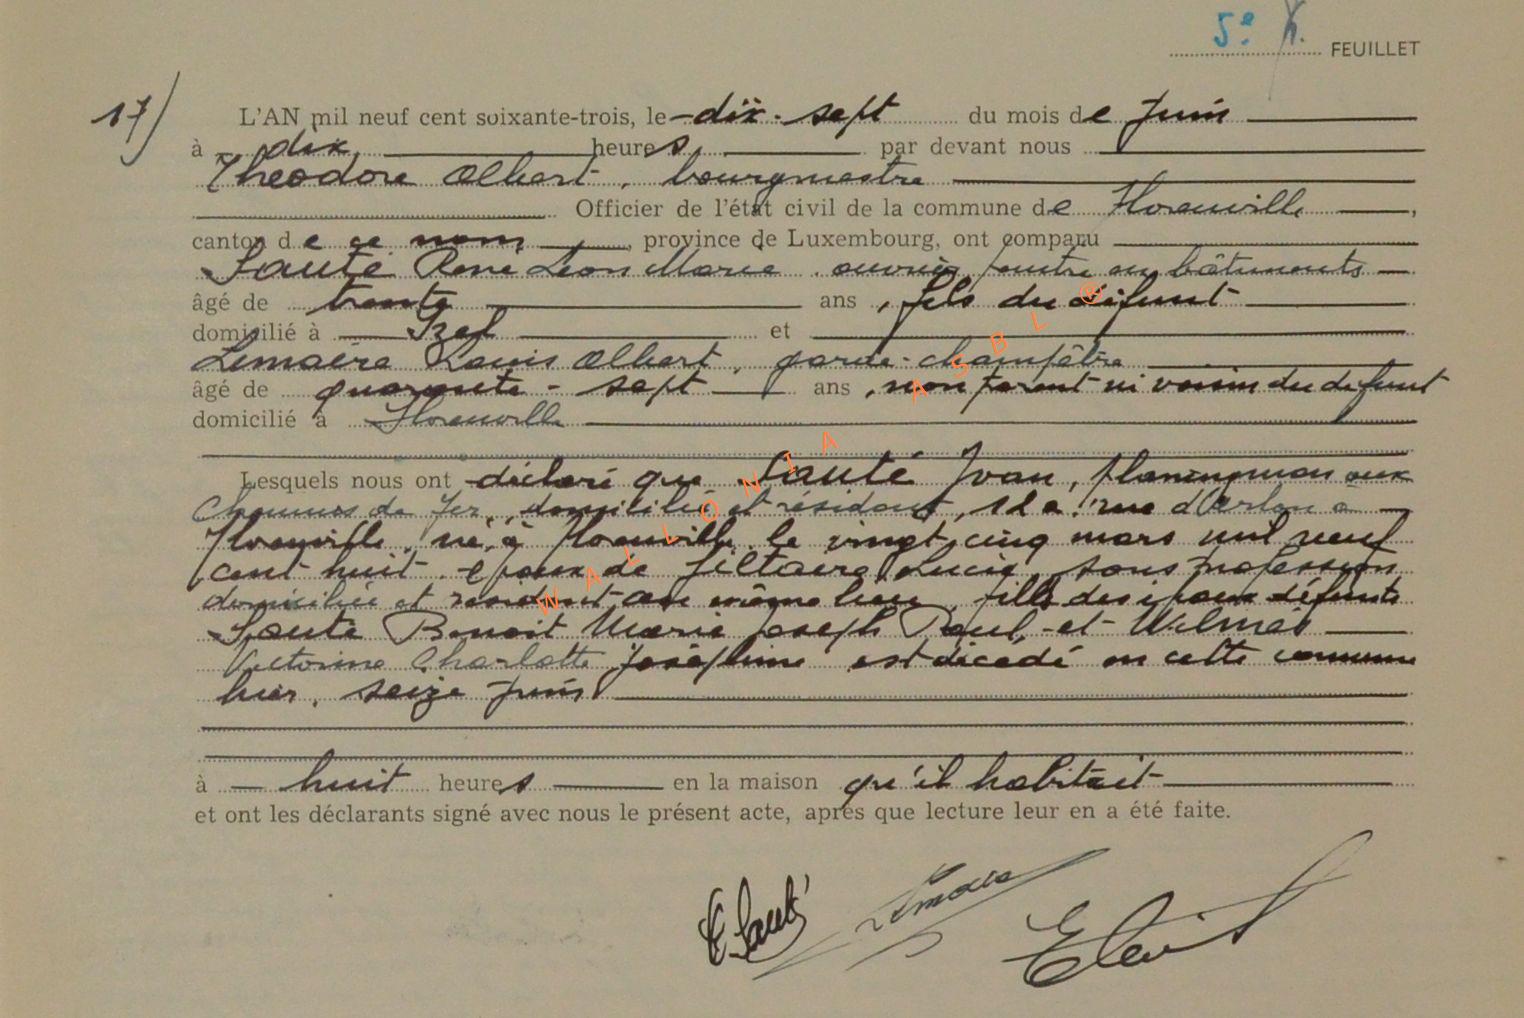 5e
FEUILLET
17)
L'AN mil neuf cent soixante-trois, le dix-sept du mois de Juin
à dix heures par devant nous
Théodore Albert, bourgmestre
Officier de l'état civil de la commune de Florenville,
canton de ce nom, province de Luxembourg, ont comparu
Sauté René Léon Marie, ouvrier peintre en bâtiments
âgé de trente ans, fils du défunt
domicilié à Izel et
Lemaire Louis Albert, garde-champêtre
âgé de quarante-sept ans, non parent ni voisin du défunt
domicilié à Florenville
Lesquels nous ont déclaré que Sauté Ivan, aux
Chemins de Fer, domicilié et résidant, 12a, rue d'Arlon à
Florenville, né à Florenville le vingt cinq mars mil neuf
cent huit, époux de Lucie, sans profession
domiciliée et résidant au même lieu, fils des époux défunts
Sauté Benoit Marie Joseph Paul et Wilmès
Victorine Charlotte Joséphine est décédé en cette commune
hier, seize juin
à huit heures en la maison qu'il habitait
et ont les déclarants signé avec nous le présent acte, après que lecture leur en a été faite.
WALLONIA ASBL ®
Sauté Lemaire